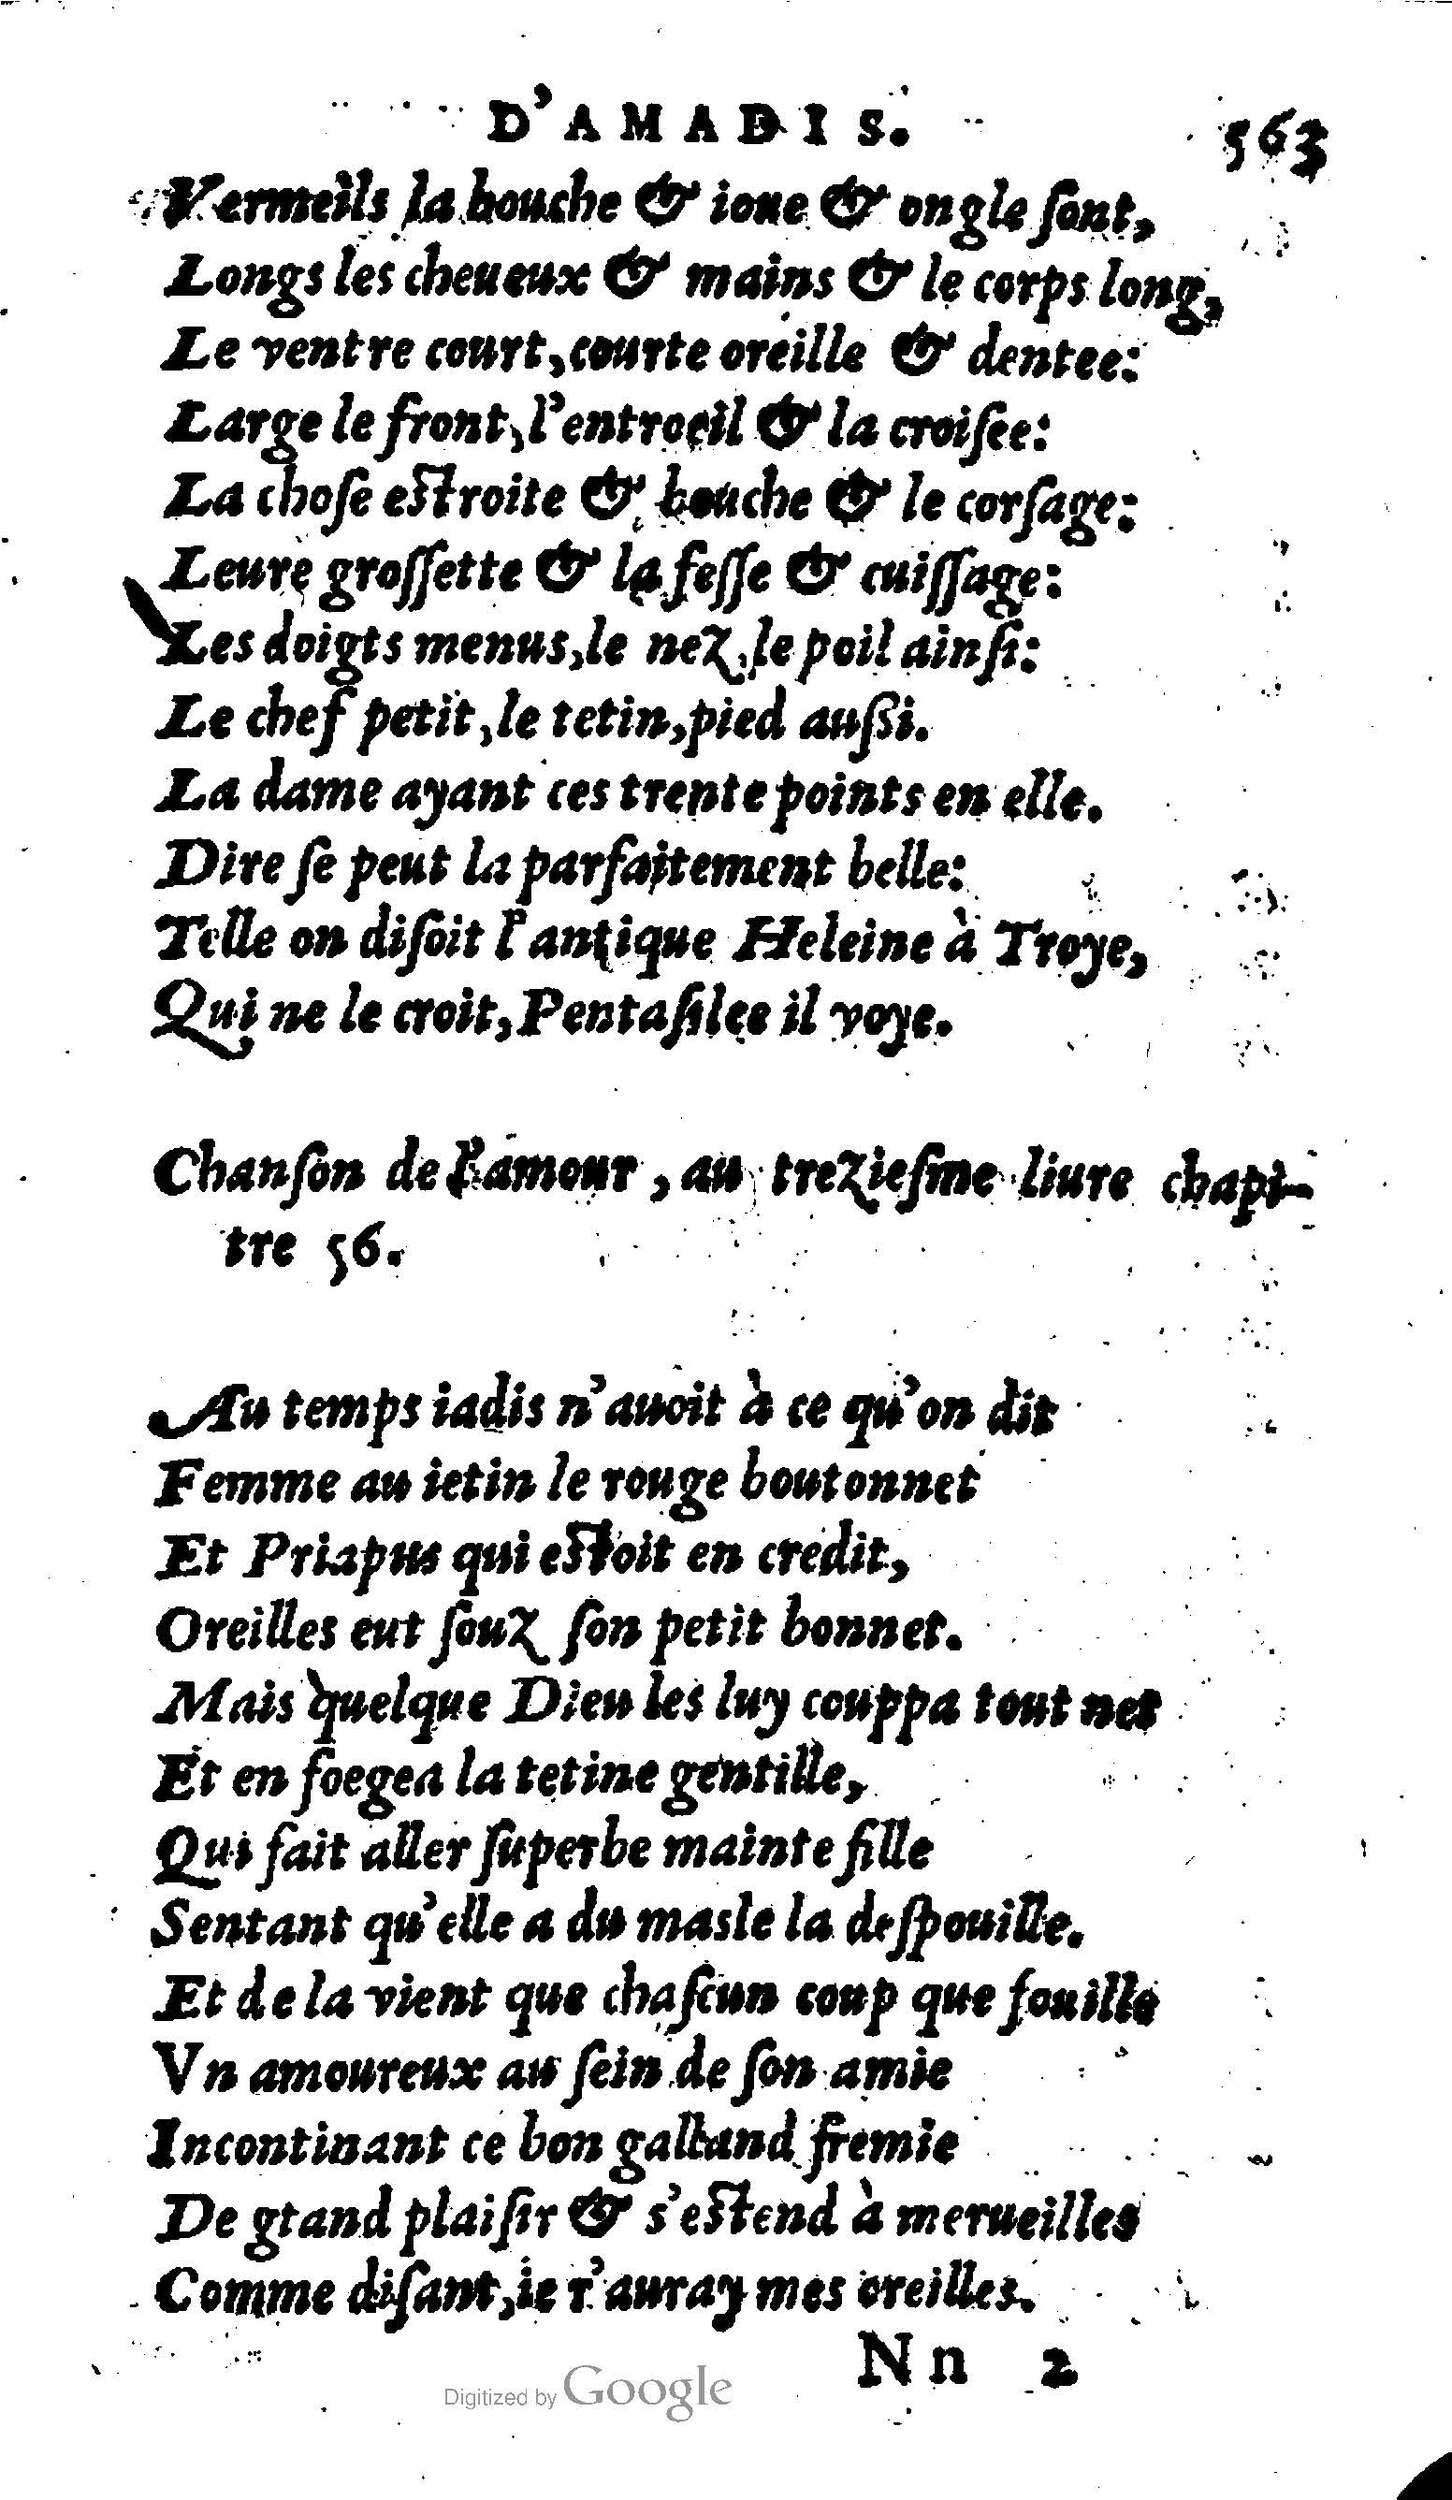 D'AMADIS. 563
Vermeils la bouche & ioue & ongle ſont,
Longs les cheueux & mains & le corps long,
Le ventre court, courte oreille & dentee:
Large le front, l'entroeil & la croiſee:
La choſe eſtroite & bouche & le corſage:
Leure groſſette & la feſſe & cuiſſage:
Les doigts menus, le nez, le poil ainſi:
Le chef petit, le tetin, pied auſſi.
La dame ayant ces trente points en elle.
Dire ſe peut la parfaitement belle:
Telle on diſoit l'antique Heleine à Troye,
Qui ne le croit, Pentaſilee il voye.
Chanſon de l'amour, au trezieſme liure chapi-
tre 56.
Au temps iadis n'auoit à ce qu'on dit
Femme au ietin le rouge boutonnet
Et Priapus qui eſtoit en credit,
Oreilles eut ſouz ſon petit bonnet.
Mais quelque Dieu les luy couppa tout net
Et en foegea la tetine gentille,
Qui fait aller ſuperbe mainte fille
Sentant qu'elle a du masle la deſpouille.
Et de la vient que chaſcun coup que fouille
Vn amoureux au ſein de ſon amie
Incontinant ce bon galland fremie
De gtand plaiſir & s'eſtend à merueilles
Comme diſant, ie r'auray mes oreilles.
Nn 2
Digitized by Google